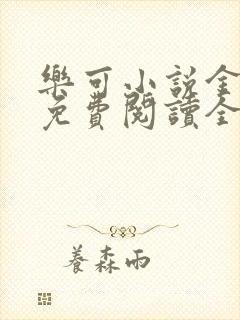 樂可小说全
免費閱讀全
養森雨